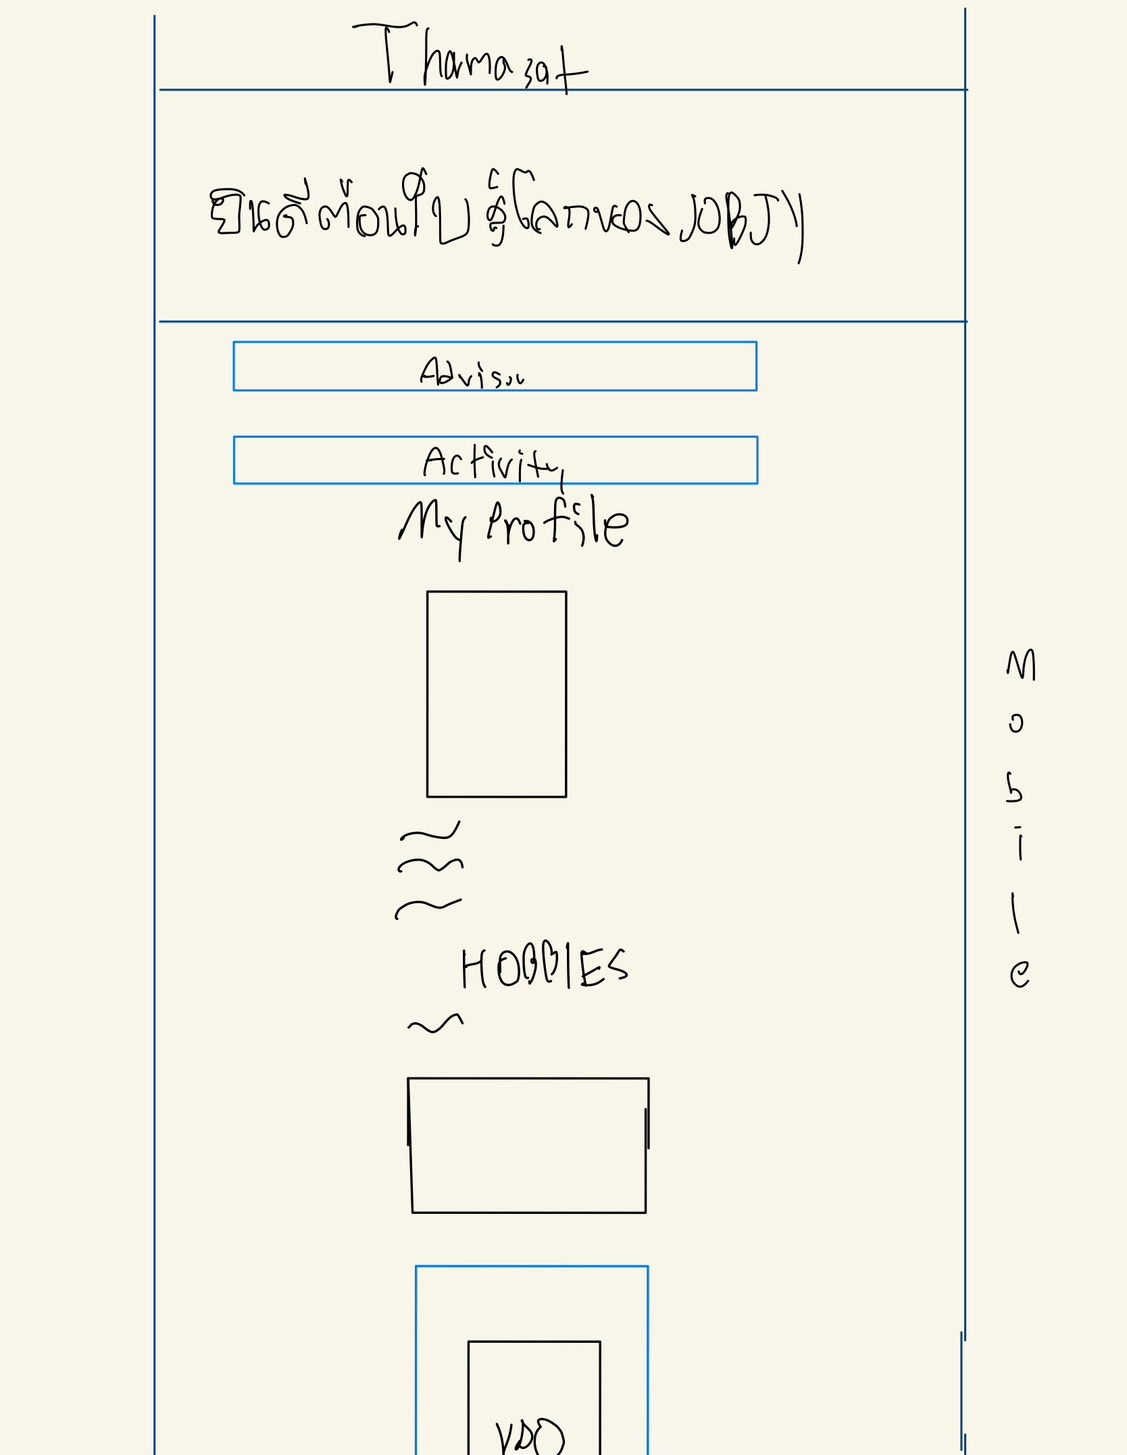 Thamasat
ยินดีต้อนรับ สู่โลกของ JOBJY
Advisor
Activity
My Profile
HOBBIES
VDO
Mobile